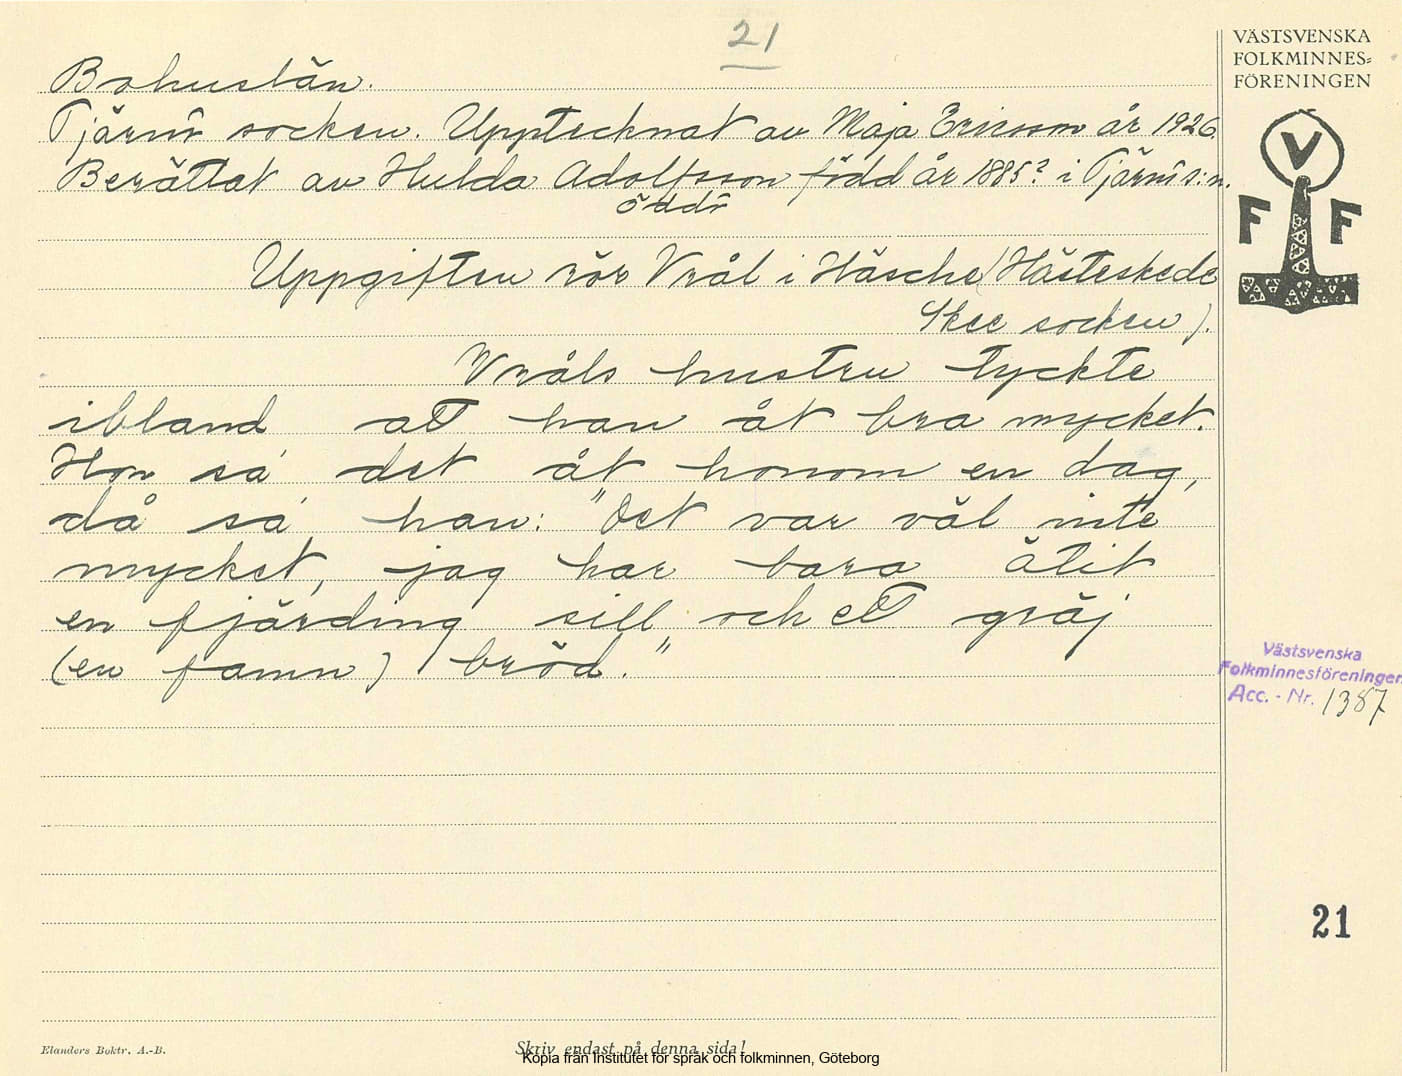 21
VÄSTSVENSKA
FOLKMINNES=
FÖRENINGEN
V
F F
Bohuslän.
Tjärnö socken. Upptecknat av Maja Ericsson år 1926.
Berättat av Hulda Adolfsson född år 1885? i Tjärnö s:n.
öddö
Uppgiften rör Vrål i Häsche (Hästeskede
Skee socken).
Vråls hustru tyckte
ibland att han åt bra mycket.
Hon sa' det åt honom en dag,
då sa' han: "Det var väl inte
mycket, jag har bara ätit
en fjärding sill och ett gräj
(en famn) bröd."
Västsvenska
Folkminnesföreningen
Acc. - Nr. 1387
21
Elanders Boktr. A.-B.
Skriv endast på denna sida!
Kopia från Institutet för språk och folkminnen, Göteborg